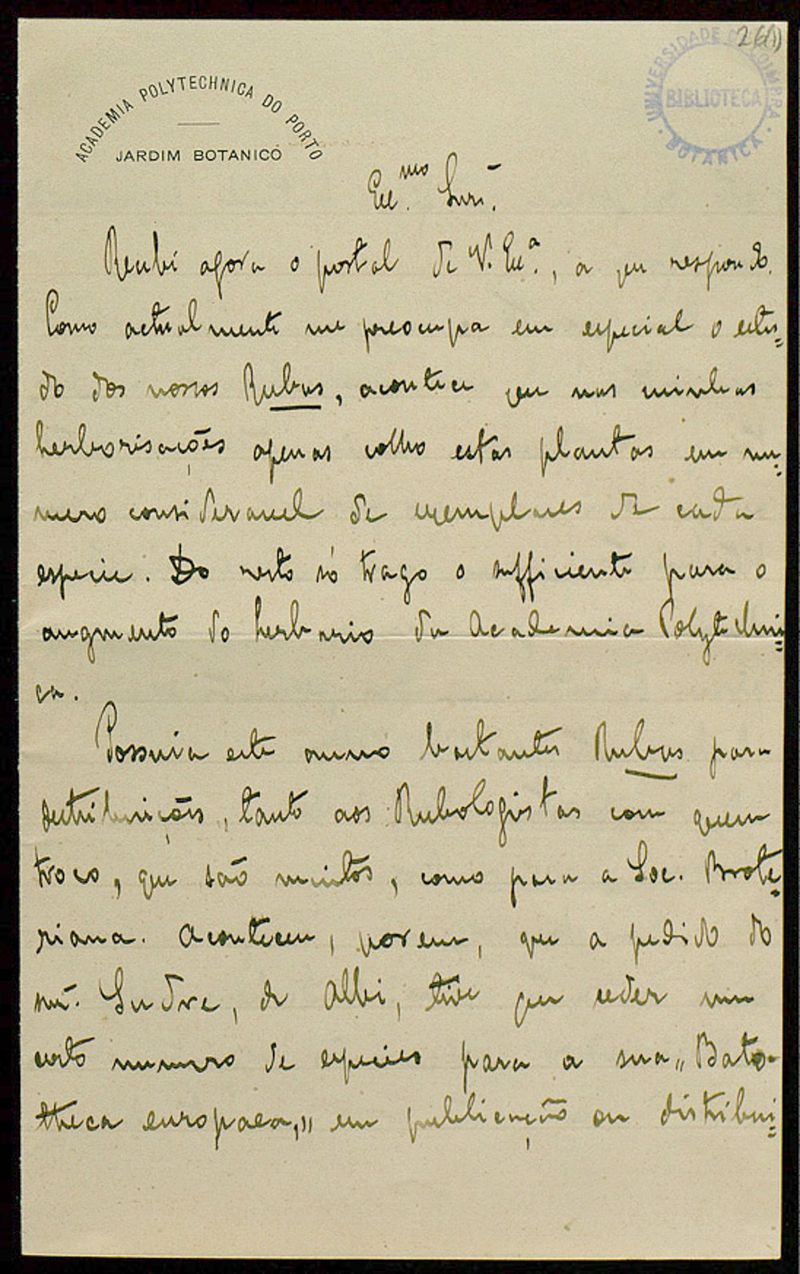 26(1)
UNIVERSIDADE DE COIMBRA
BIBLIOTECA
BOTANICA
ACADEMIA POLYTECHNICA DO PORTO
JARDIM BOTANICO
Ex.mo Snr.
Recebi agora o postal de V. Ex.a, a que respondo.
Como actualmente me preocupa em especial o estu-
do dos nossos Rubus, acontece que nas minhas
herborisações apenas colho estas plantas em nu-
mero consideravel de exemplares de cada
especie. Do resto só trago o sufficiente para o
augmento do herbario da Academia Polytechni-
ca.
Possuia este anno bastantes Rubus para
distribuições, tanto aos Rubologistas com quem
troco, que são muitos, como para a Soc. Brote-
riana. Aconteceu, porem, que a pedido do
snr. Sudre, de Albi, tive que ceder um
certo numero de especies para a sua „Bato-
theca europaea,„ em publicação ou distribui-